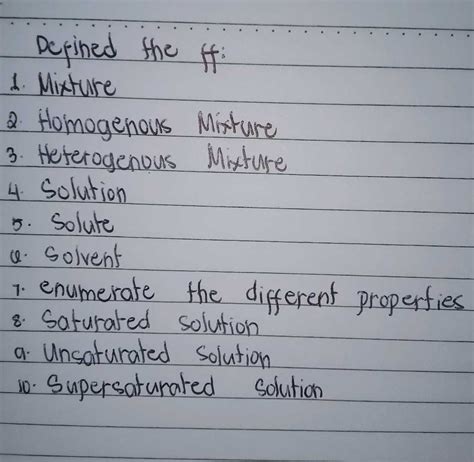 Defined the ff:
1. Mixture
2. Homogenous Mixture
3. Heterogenous Mixture
4. Solution
5. Solute
6. Solvent
7. enumerate the different properties
8. Saturated solution
9. Unsaturated Solution
10. Supersaturated Solution